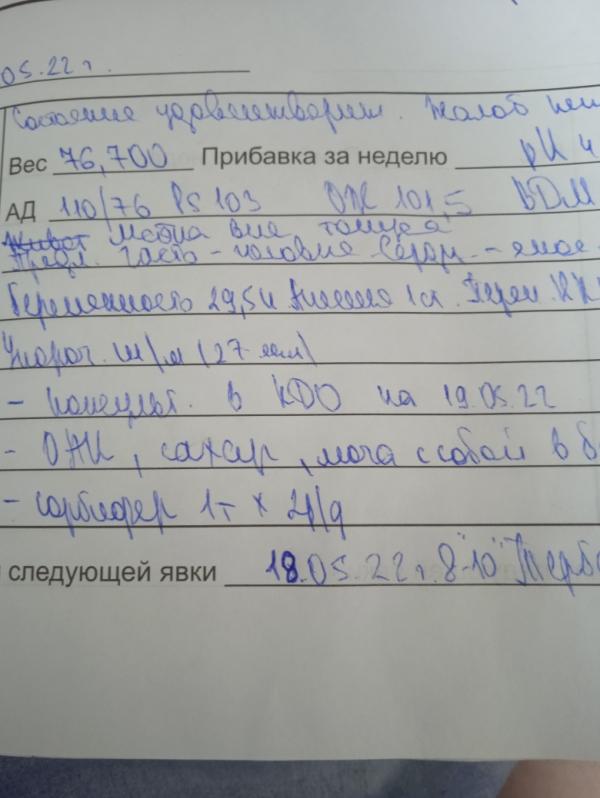 05.22 г.
Состояние удовлетворит. Жалоб нет
Вес 76,700 Прибавка за неделю рН 4
АД 110/76 Ps 103 ОЖ 101,5 ВДМ
Живот Матка вне тонуса
Предл. часть - головка Серд. - ясное
Беременность 29,5н Анемия 1ст.
Укороч. ш/м (27 мм)
- консульт. в КДО на 19.05.22
- ОАК, сахар, моча с собой в
- сорбифер 1т х 2р/д
следующей явки 18.05.22 г. 8-10